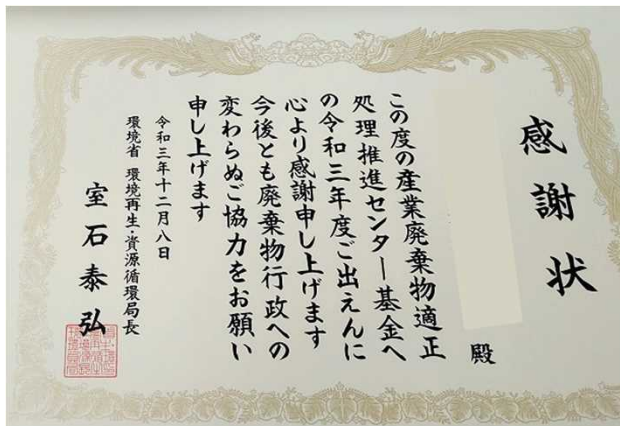 感謝状
殿
この度の産業廃棄物適正
処理推進センター基金へ
の令和三年度ご出えんに
心より感謝申し上げます
今後とも廃棄物行政への
変わらぬご協力をお願い
申し上げます
令和三年十二月八日
環境省 環境再生・資源循環局長
室石泰弘